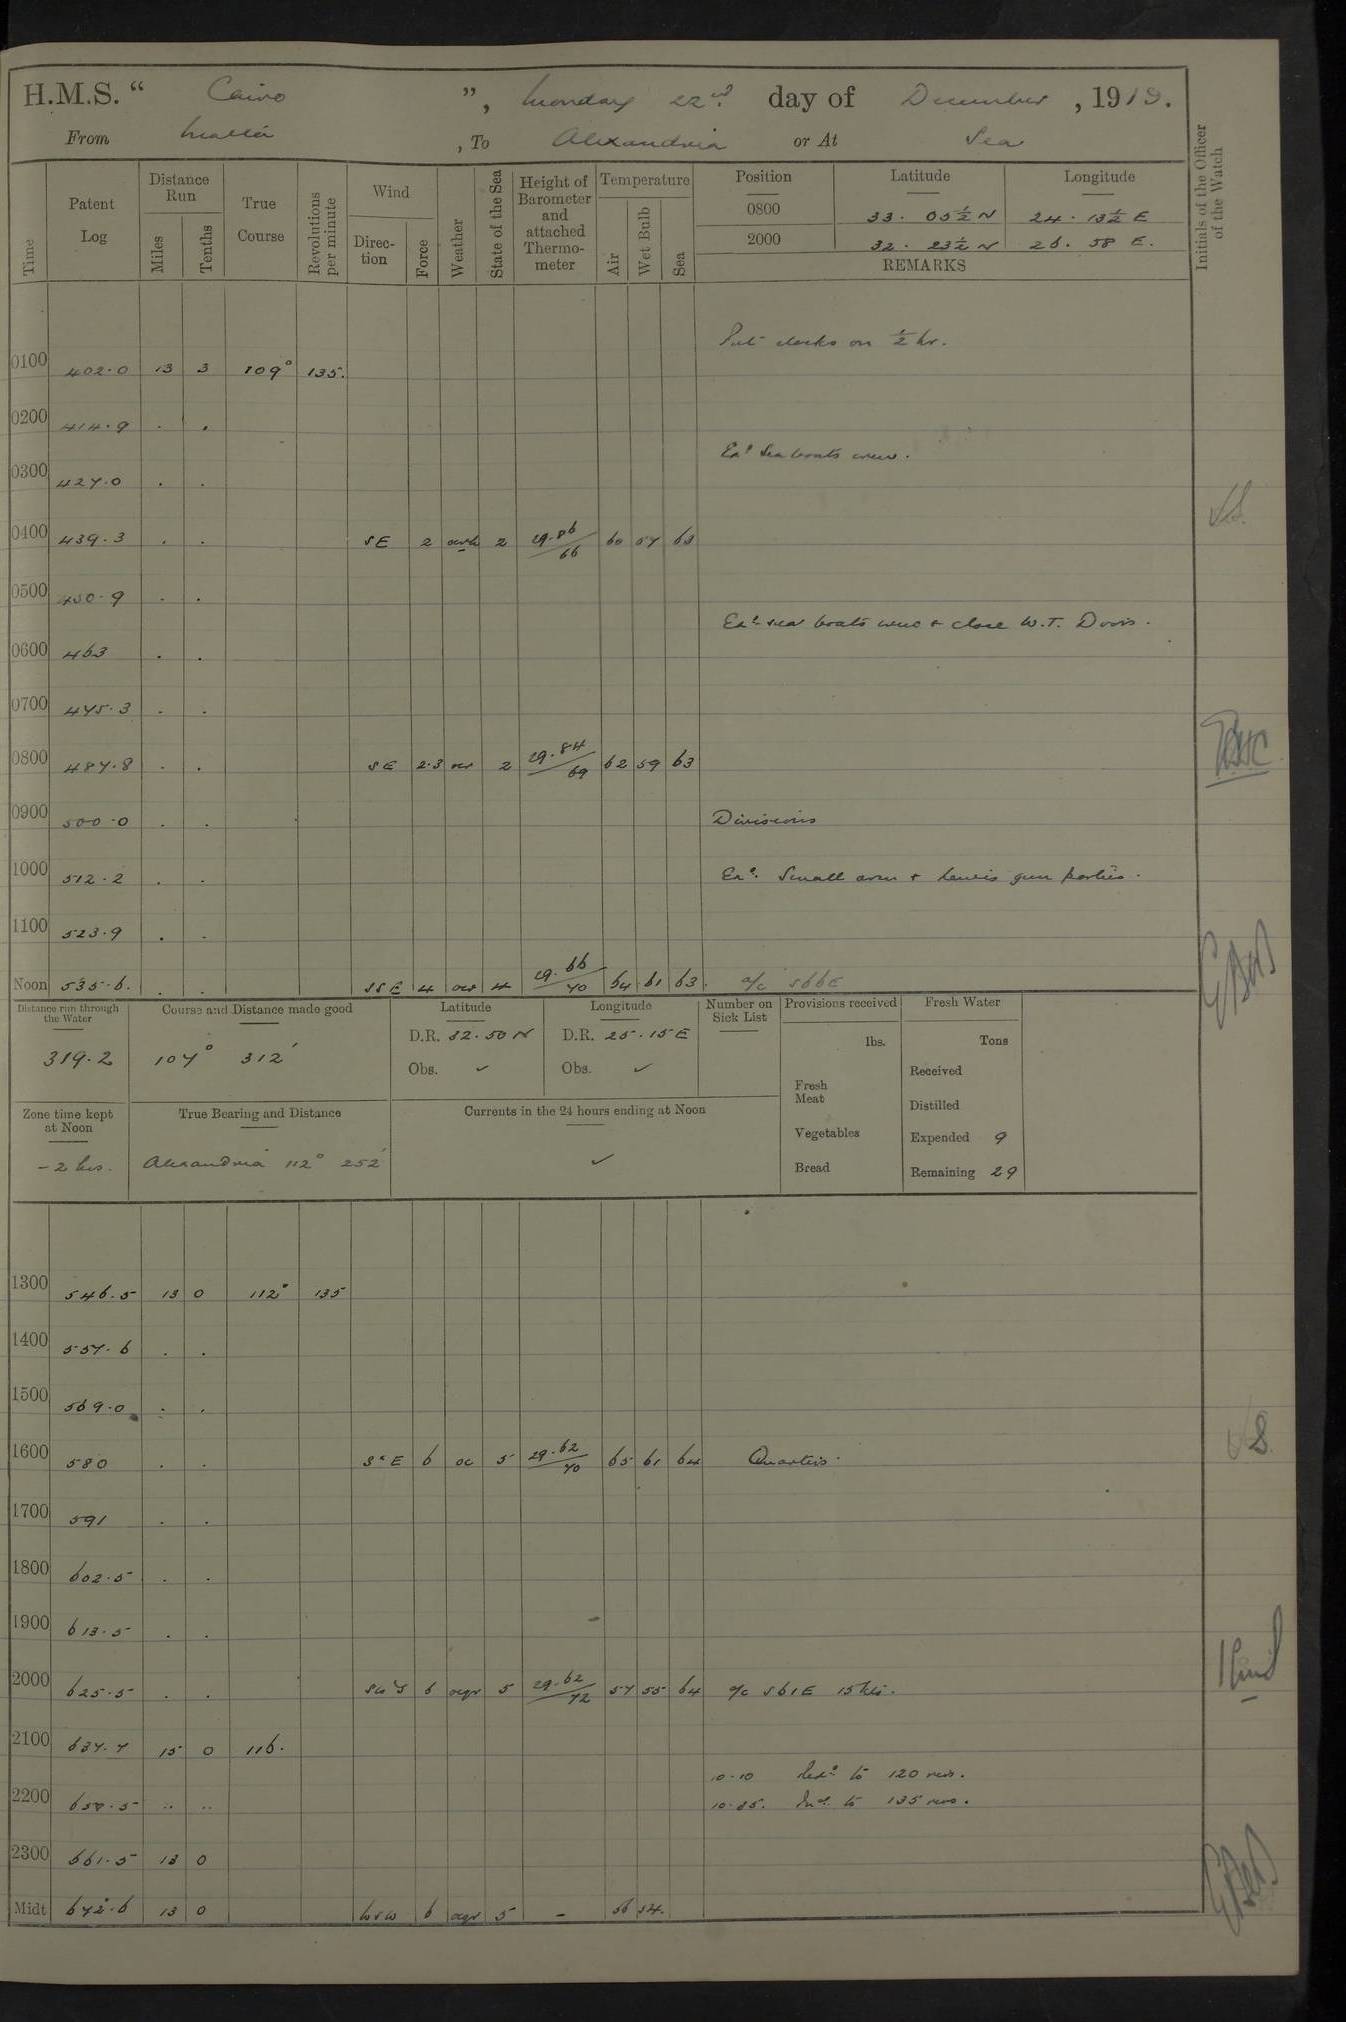 H.M.S. “ Cairo ”, Monday 22nd day of December, 1919.
From Malta, To Alexandria or At Sea
Time
Patent Log
Distance Run
Miles
Tenths
True Course
Revolutions per minute
Wind
Direc-tion
Force
Weather
State of the Sea
Height of Barometer and attached Thermo-meter
Temperature
Air
Wet Bulb
Sea
Position Latitude Longitude
0800 33. 05½ N 24. 13½ E
2000 32. 23½ N 26. 58 E.
REMARKS
Initials of the Officer of the Watch
Put clocks on ½ hr.
0100 402.0 13 3 109° 135.
0200 414.9 . .
Exd Sea boats crew.
0300 427.0 . .
0400 439.3 . . SE 2 2 29.86/66 60 57 63
0500 450.9 . .
Exd sea boats crew & close W.T. Doors.
0600 463 . .
0700 475.3 . .
0800 487.8 . . SE 2.3 oc 2 29.84/69 62 59 63
0900 500.0 . . Divisions
1000 512.2 . . Exd. Small arm & Lewis gun parties.
1100 523.9 . .
Noon 535.6. . . SSE 4 oc 4 29.66/70 64 61 63. a/c S66E
Distance run through the Water
319.2
Course and Distance made good
107° 312'
Latitude
D.R. 32.50 N
Obs. ✓
Longitude
D.R. 25.15 E
Obs. ✓
Number on Sick List
Provisions received
lbs.
Fresh Meat
Vegetables
Bread
Fresh Water
Tons
Received
Distilled
Expended 9
Remaining 29
Zone time kept at Noon
-2 hrs.
True Bearing and Distance
Alexandria 112° 252'
Currents in the 24 hours ending at Noon
✓
1300 546.5 13 0 112° 135
1400 557.6 . .
1500 569.0 . .
1600 580 . . S'E 6 oc 5 29.62/70 65 61 64 Quarters.
1700 591 . .
1800 602.5 . .
1900 613.5 . .
2000 625.5 . . 6 5 29.62/72 57 55 64 a/c S61E 15 kts.
2100 637.7 15 0 116.
10-10 Redd to 120 revs.
2200 650.5 .. ..
10.35. Incd. to 135 revs.
2300 661.5 13 0
Midt 672.6 13 0 WSW 6 5 - 56 54.